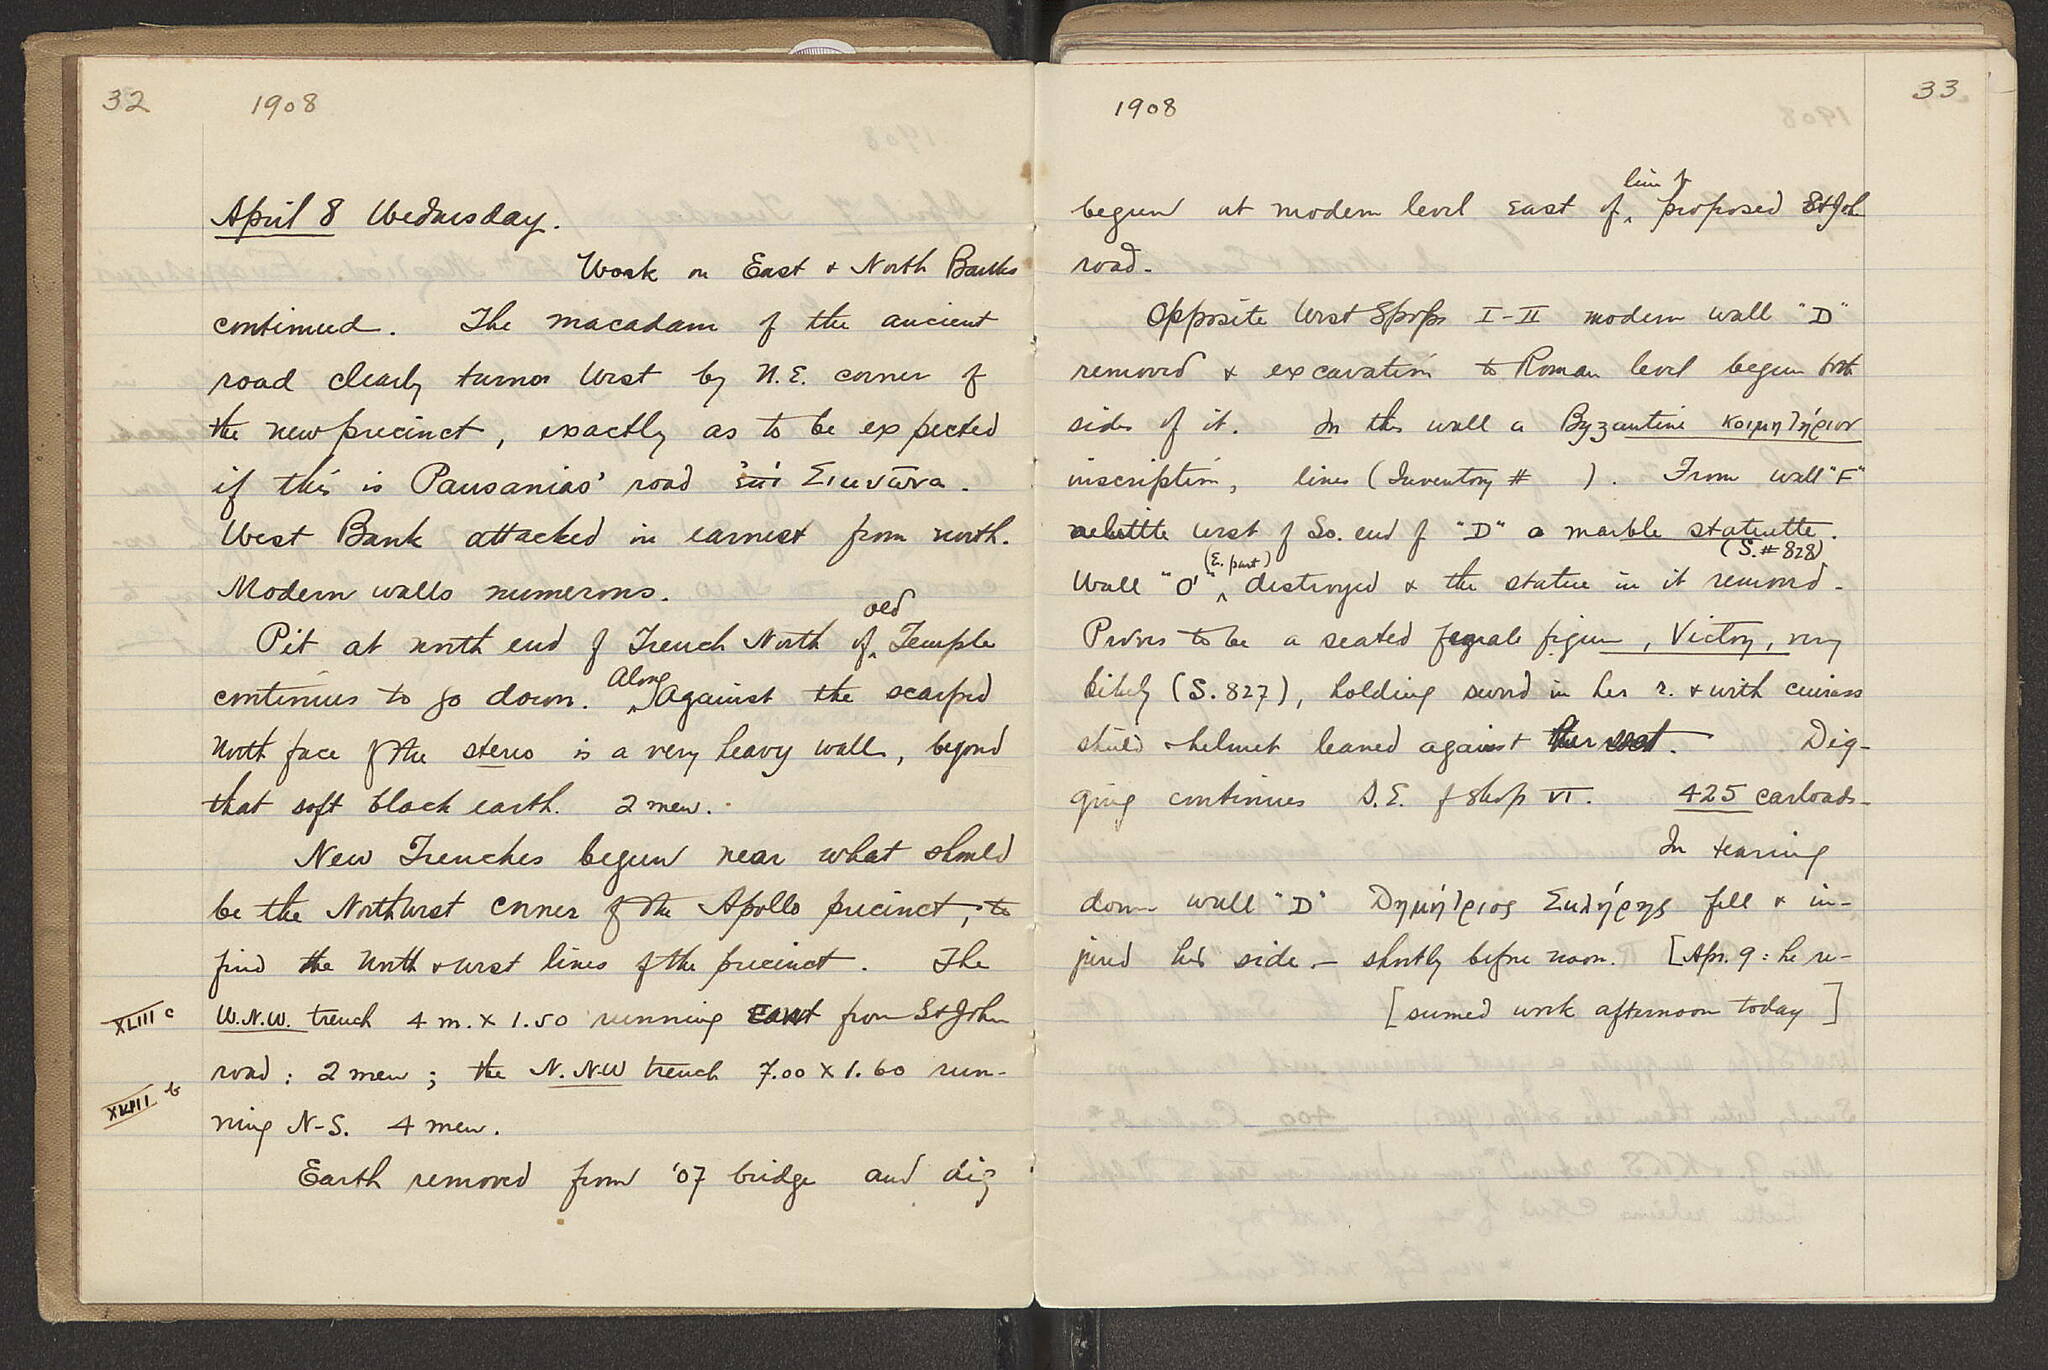 32
1908
April 8 Wednesday.
Work on East & North Banks
continued. The macadam of the ancient
road clearly turns West by N.E. corner of
the new precinct, exactly as to be expected
if this is Pausanias' road ἐπὶ Σικυῶνα.
West Bank attacked in earnest from north.
Modern walls numerous.
old
Pit at north end of Trench North of Temple
continues to go down. Along against the scarped
north face of the stereo is a very heavy wall, beyond
that soft black earth. 2 men.
New Trenches begun near what should
be the Northwest corner of the Apollo precinct, to
find the North & west lines of the precinct. The
XLIII c
W.N.W. trench 4 m. x 1.50 running east from St John
road: 2 men; the N.NW trench 7.00 x 1.60 run-
XLIII b
ning N-S. 4 men.
Earth removed from '07 bridge and dig
1908
33
line of
begun at modern level east of proposed St Joh
road.
Opposite West Shops I-II modern wall "D"
removed & excavation to Roman level begun both
sides of it. In this wall a Byzantine κοιμητήριον
inscription, lines (Inventory # ). From wall "F"
a little west of So. end of "D" a marble statuette.
(S.#828)
(E. part)
Wall "O'" destroyed & the statue in it removed.
Proves to be a seated female figure, Victory, very
likely (S.827), holding sword in her r. & with cuirass
shield & helmet leaned against her seat. Dig-
ging continues S.E. of Shop VI. 425 carloads.
In tearing
down wall "D" Δημήτριος fell & in-
jured his side. - shortly before noon. [Apr. 9: he re-
[sumed work afternoon today]